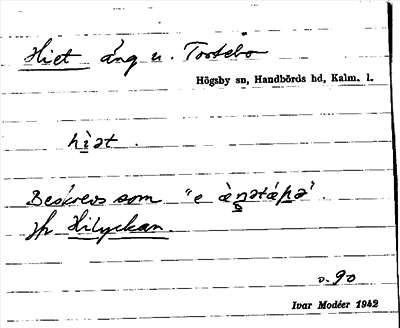 Hiet äng u. Tortebo
Högsby sn, Handbörds hd, Kalm. l.
hìət.
Beskrevs som "e
jfr Hilyckan.
o. 90
Ivar Modéer 1942